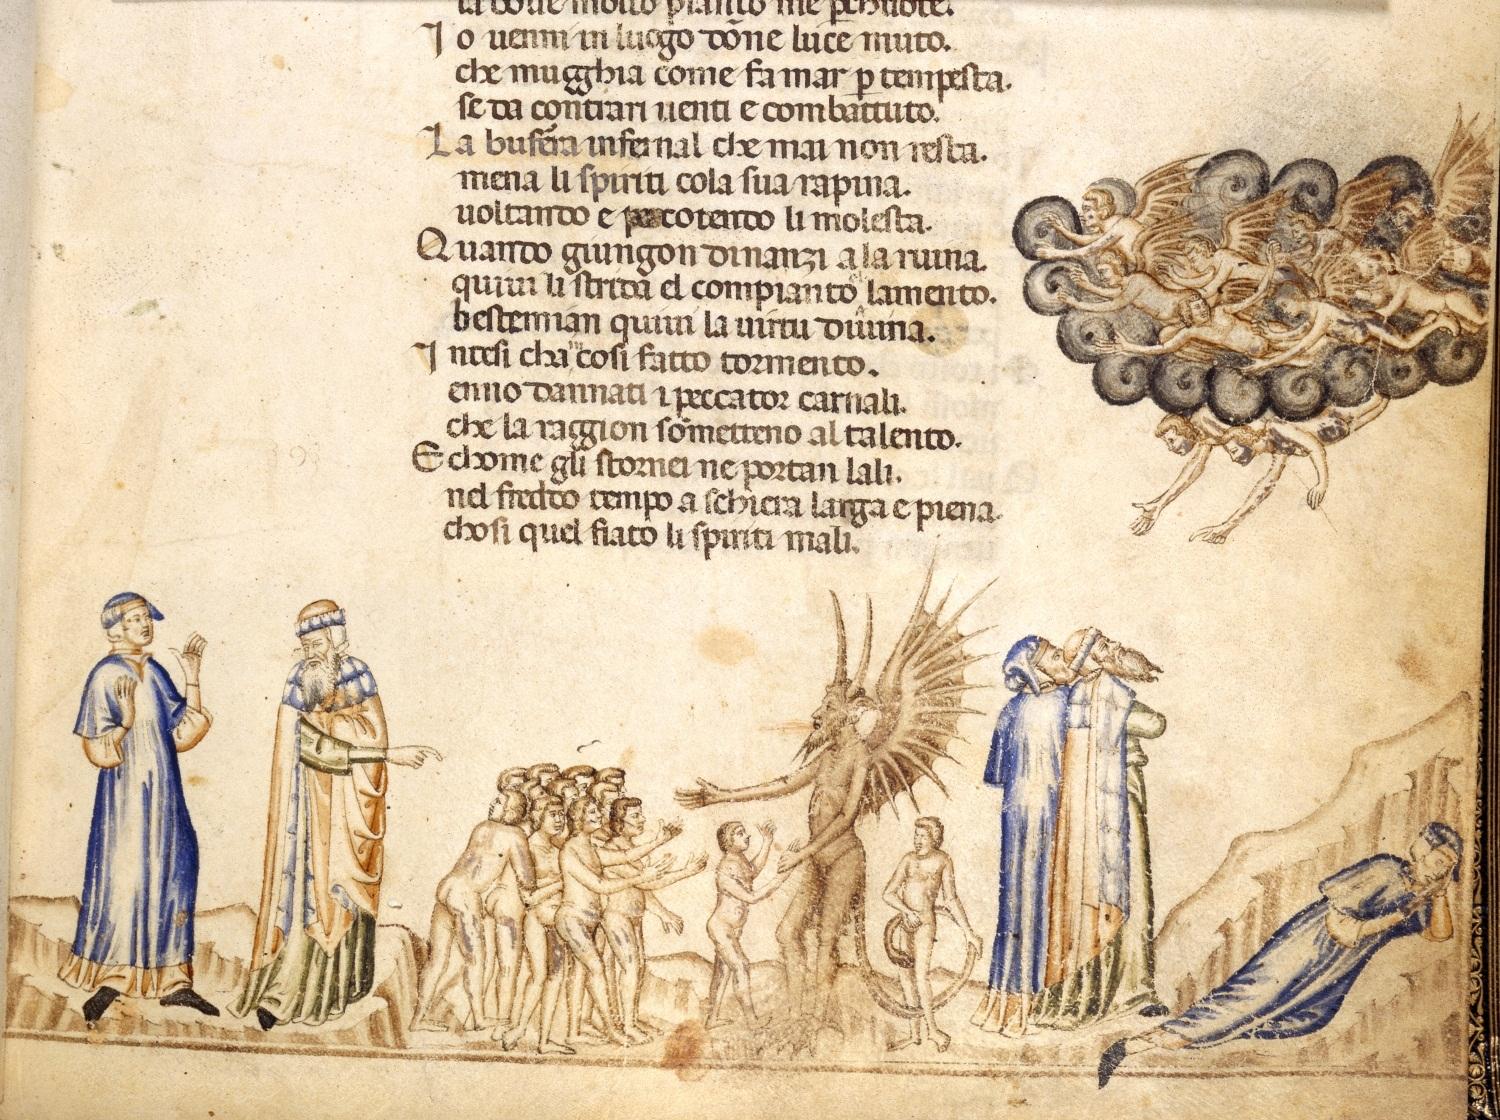 la doue molto pianto me pchuote.
Io uenni in luogo dōne luce muto.
che mugghia come fa mar p tempesta.
se da contrari uenti e combattuto.
La bufera infernal che mai non resta.
mena li spiriti cola sua rapina.
uoltando e percotendo li molesta.
Quando giungon dinanzi a la ruina.
quiui li strida el compianto lamento.
bestemian quiui la uirtu diuina.
Intesi cha cosi fatto tormento.
enno dannati i peccator carnali.
che la raggion sōmetteno al talento.
E chome gli stornei ne portan lali.
nel freddo tempo a schiera larga e piena.
chosi quel fiato li spiriti mali.